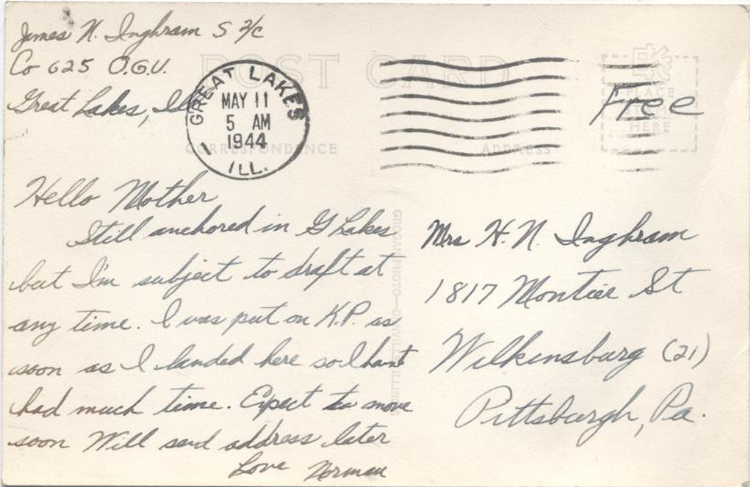 James N. Inghram S 2/c
Co 625 O.G.U.
Great Lakes, Ill
POST CARD
GREAT LAKES
MAY 11
5 AM
1944
ILL.
PLACE
HERE
Free
CORRESPONDENCE
ADDRESS
Hello Mother
Still anchored in G Lakes
but I'm subject to draft at
any time. I was put on K.P. as
soon as I landed here so I hant
had much time. Expect to move
soon Will send address later
Love Norman
Mrs H. N. Inghram
1817 Montier St
Wilkinsburg (21)
Pittsburgh, Pa.